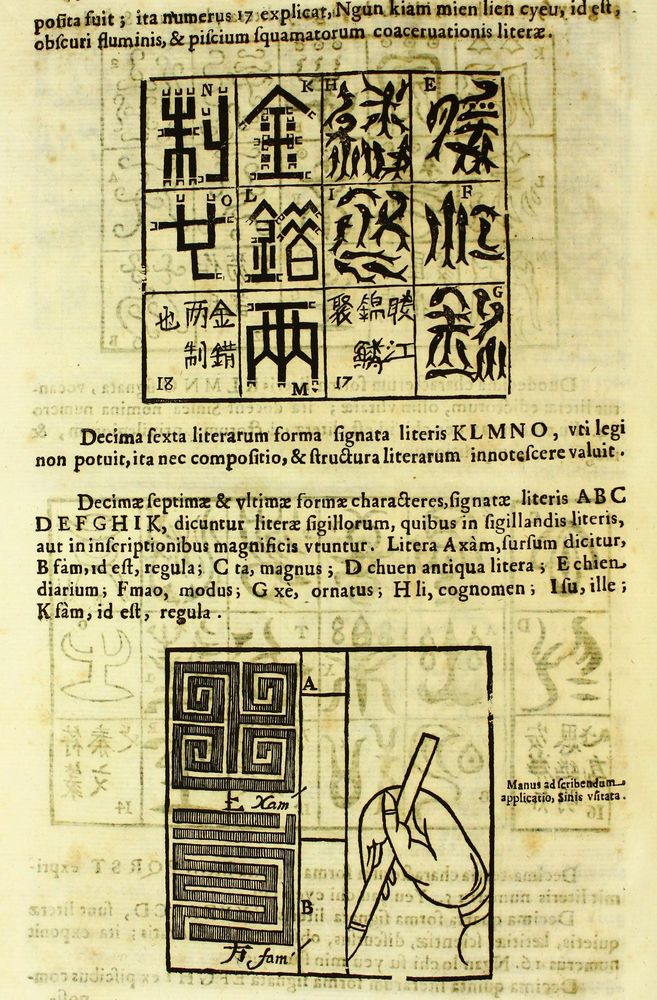 poſita fuit ; ita numerus 17 explicat, Ngun kiam mien lien cyeu, id eſt,
obſcuri fluminis, & piſcium ſquamatorum coaceruationis literæ.
N K H E
O L I F
G
金錯
两制
也
江
錦鱗
聚
18 M 17
Decima ſexta literarum forma ſignata literis K L M N O , vti legi
non potuit, ita nec compoſitio, & ſtructura literarum innoteſcere valuit .
Decimæ ſeptimæ & vltimæ formæ characteres, ſignatæ literis A B C
D E F G H I K, dicuntur literæ ſigillorum, quibus in ſigillandis literis,
aut in inſcriptionibus magnificis vtuntur . Litera A xàm, ſurſum dicitur,
B fám, id eſt, regula ; C ta, magnus ; D chuen antiqua litera ; E chien
diarium ; F mao, modus ; G xè, ornatus ; H li, cognomen ; I su, ille ;
K fâm, id eſt, regula .
A
Xam
B
fam
Manus ad ſcribendum
applicatio, Sinis vſitata .